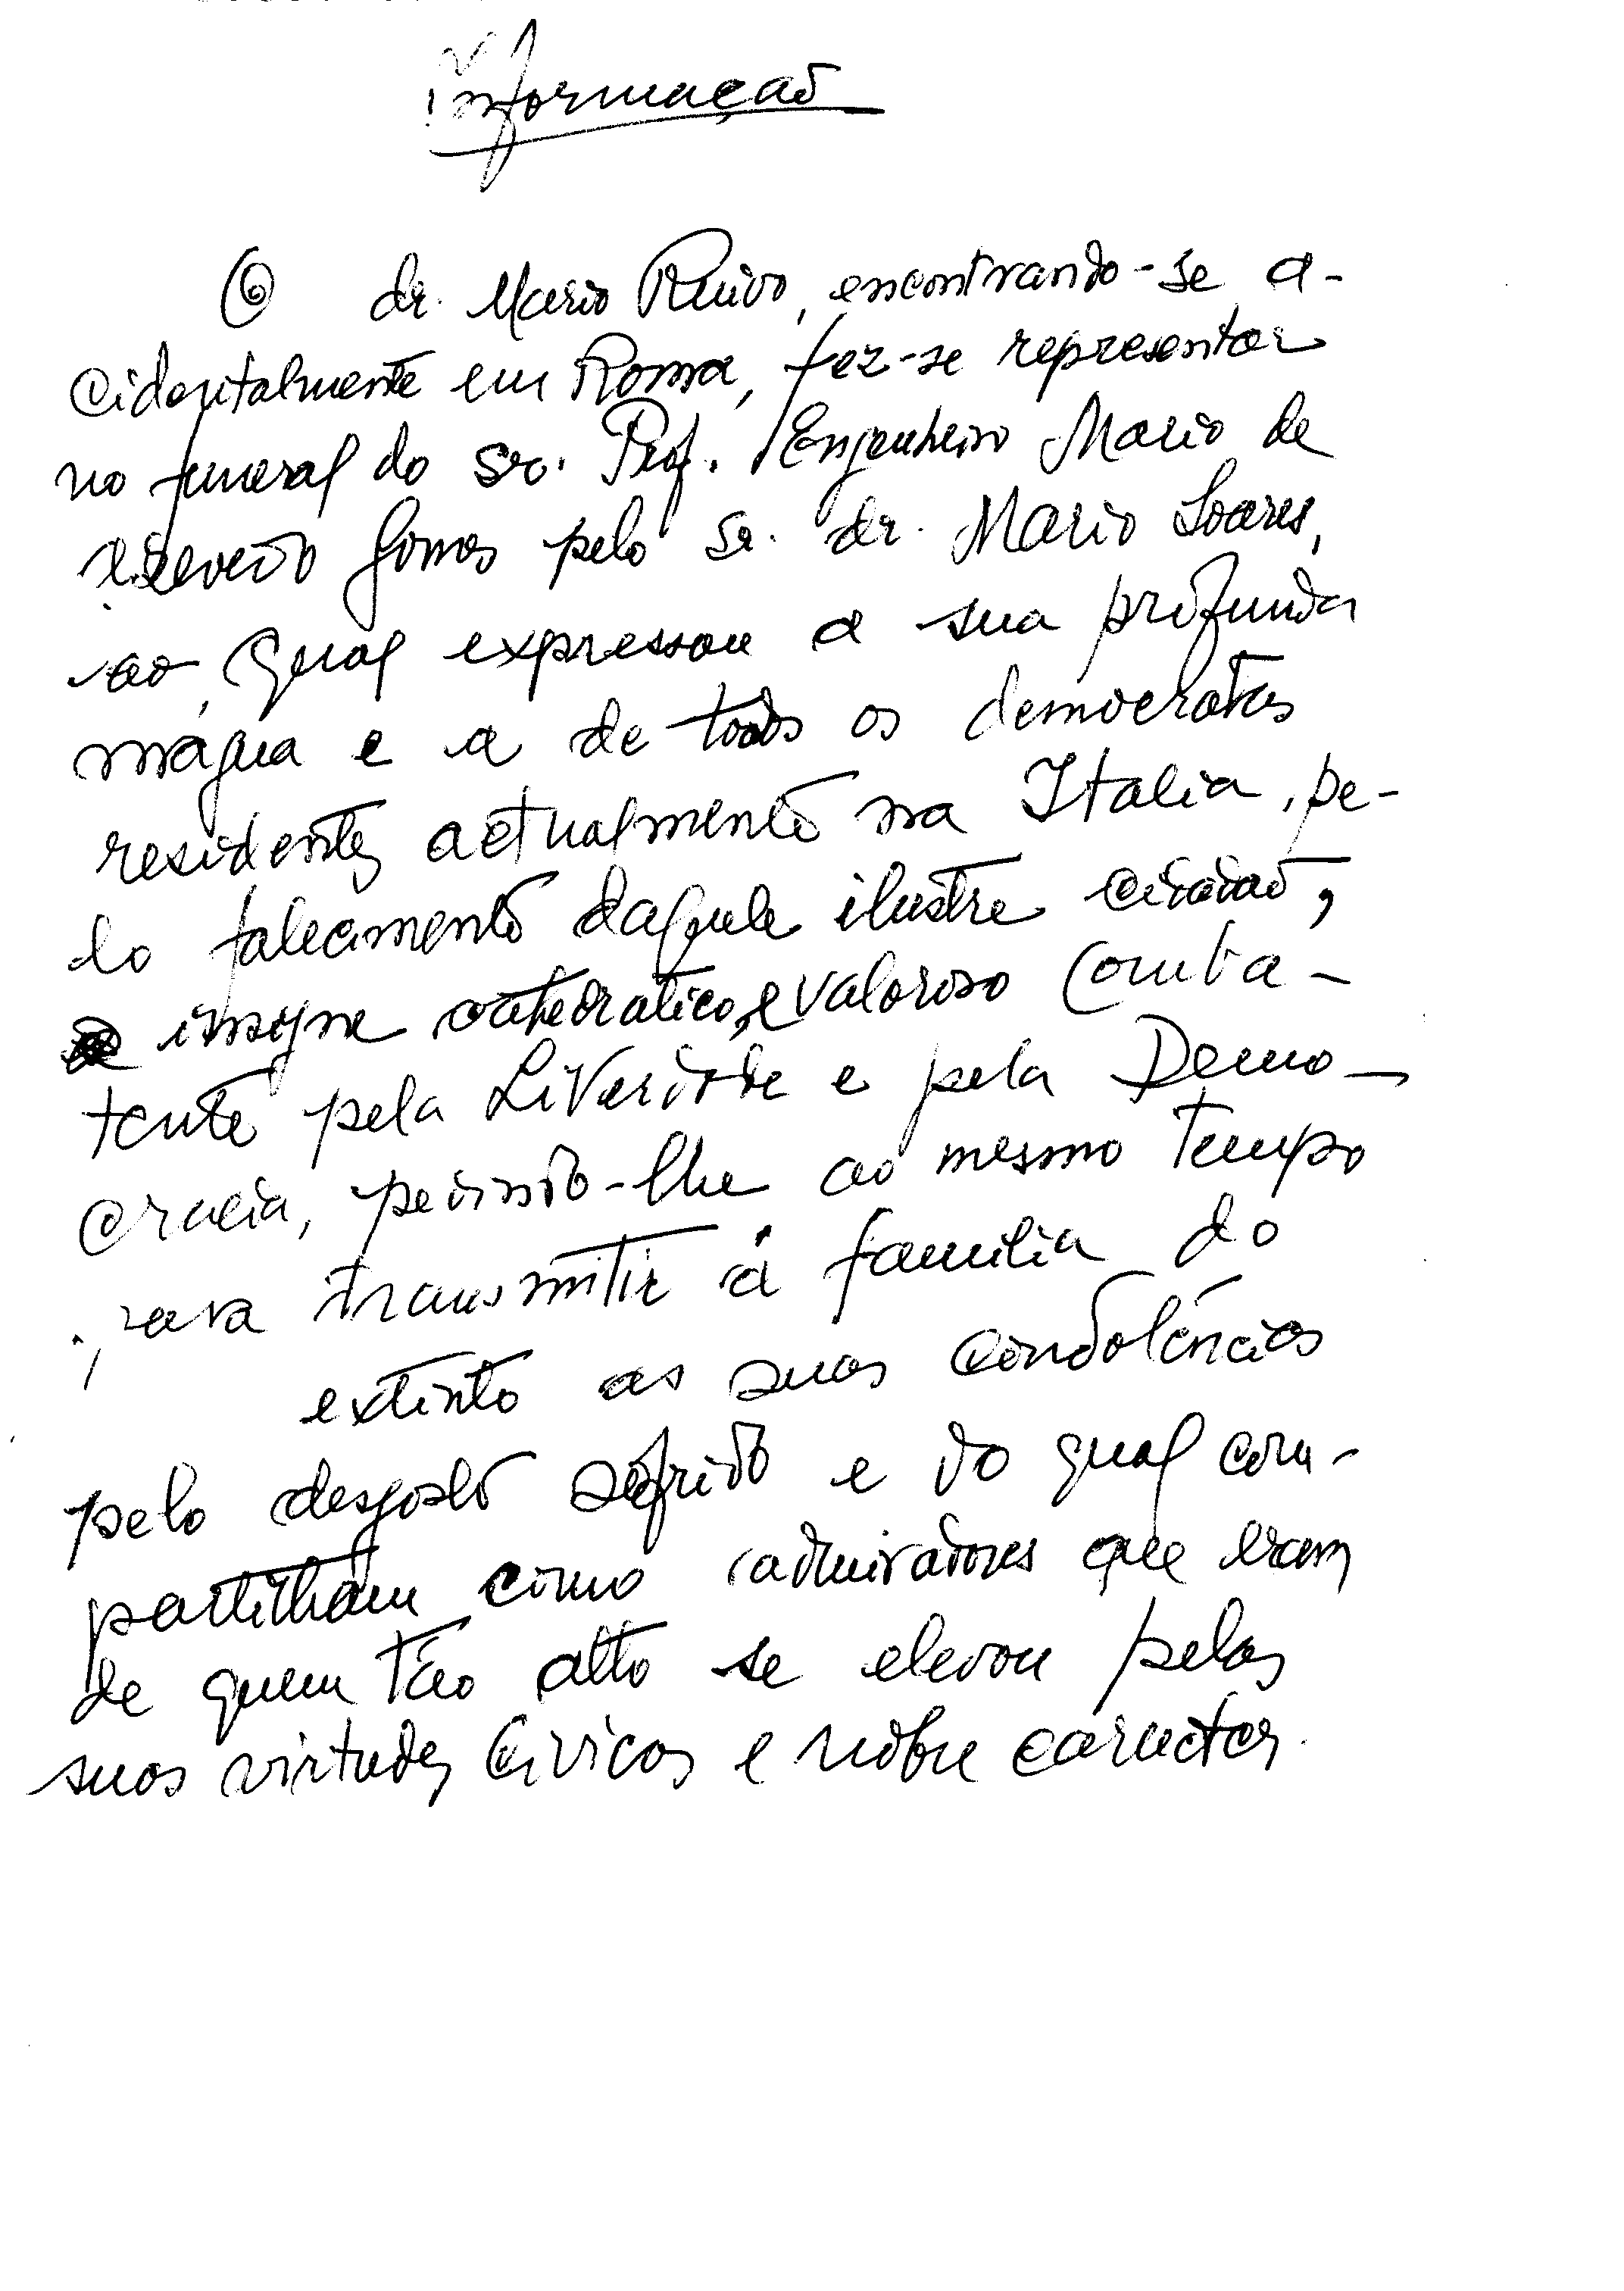 Informação
O dr. Mario Ruivo, encontrando-se a-
cidentalmente em Roma, fez-se representar
no funeral do sr. Prof. Engenheiro Mario de
Azevedo Gomes pelo sr. dr. Mario Soares,
ao qual expressou a sua profunda
mágua e a de todos os democratas
residentes actualmente na Italia, pe-
lo falecimento daquele ilustre cidadão,
insigne catedratico, e valoroso comba-
tente pela Liberdade e pela Demo-
cracia, pedindo-lhe ao mesmo tempo
para transmitir á familia do
extinto as suas condolências
pelo desgosto sofrido e do qual com-
partilham como admiradores que eram
de quem tão alto se elevou pelas
suas virtudes civicas e nobre caracter.